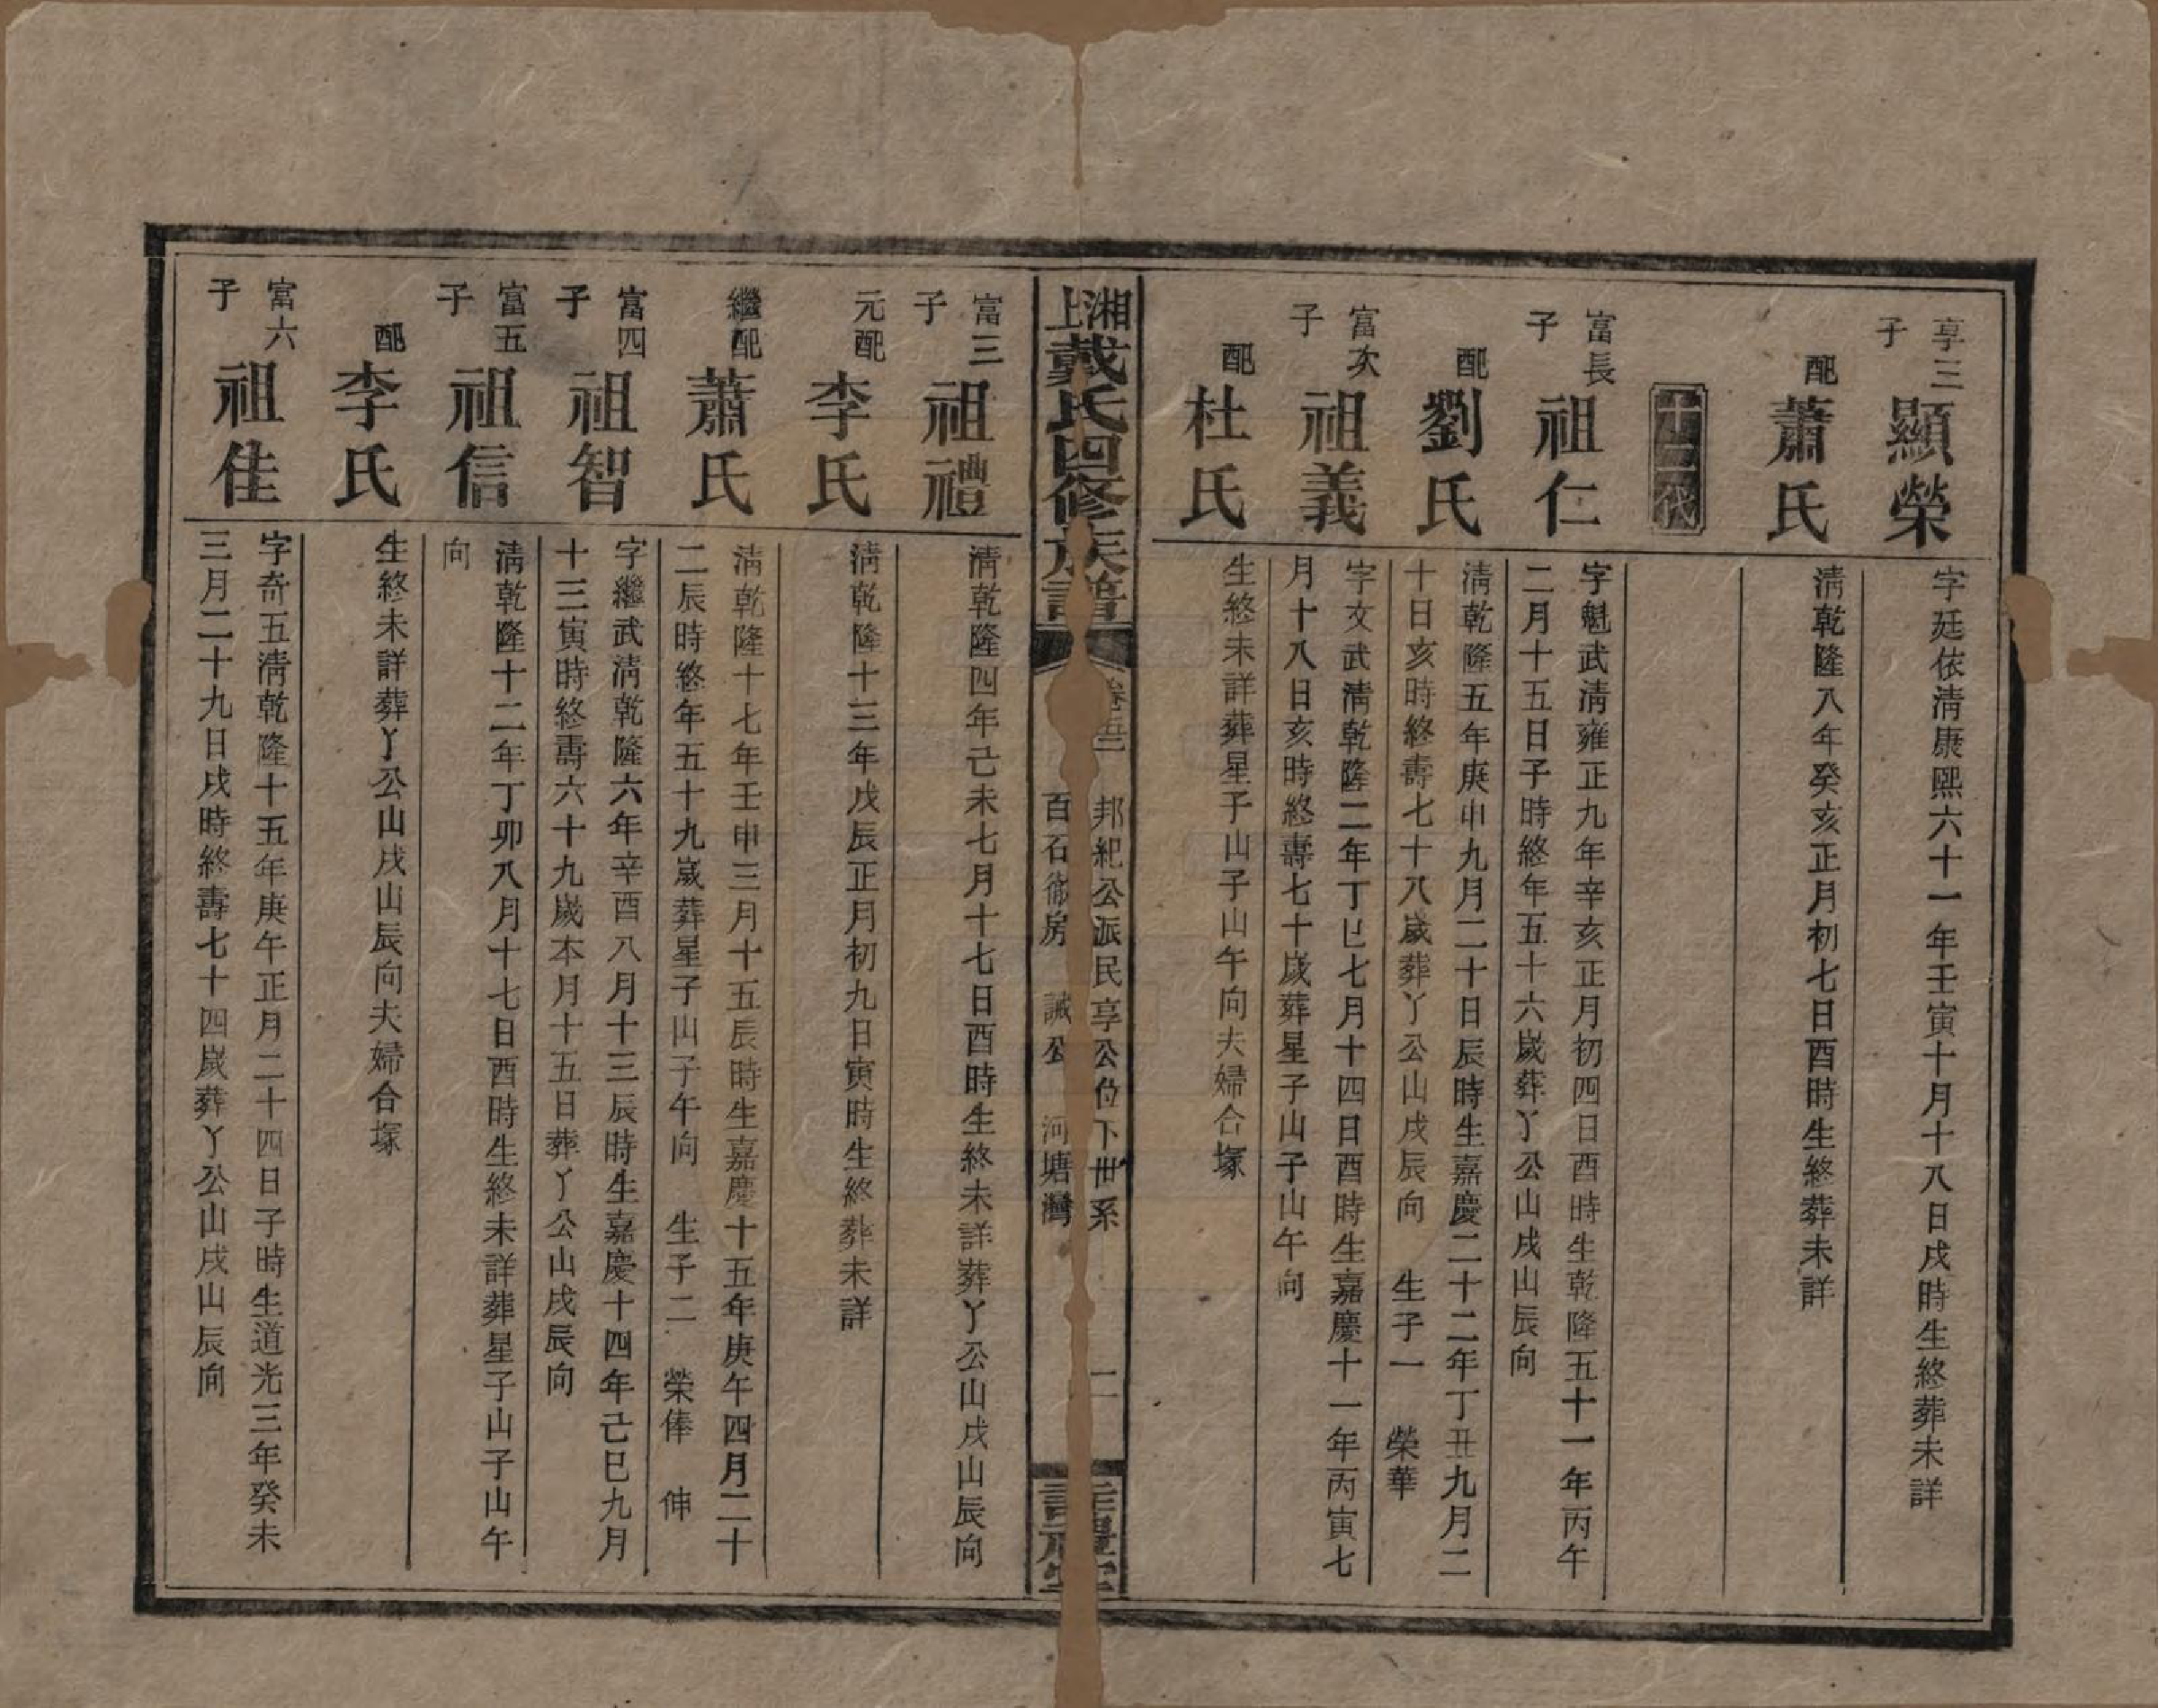 享三子
顯榮
字廷依淸康熙六十一年壬寅十月十八日戌時生終葬未詳
配
蕭氏
淸乾隆八年癸亥正月初七日酉時生終葬未詳
十二代
富長子
祖仁
字魁武淸雍正九年辛亥正月初四日酉時生乾隆五十一年丙午
二月十五日子時終年五十六歲葬丫公山戌山辰向
配
劉氏
淸乾隆五年庚申九月二十日辰時生嘉慶二十二年丁丑九月二
十日亥時終壽七十八歲葬丫公山戌辰向 生子一 榮華
富次子
祖義
字文武淸乾隆二年丁巳七月十四日酉時生嘉慶十一年丙寅七
月十八日亥時終壽七十歲葬星子山子山午向
配
杜氏
生終未詳葬星子山子山午向夫婦合塚
湘上戴氏四修族譜
邦紀公派民享公位下世系
百石衝房 誠公 河塘灣
二
富三子
祖禮
淸乾隆四年己未七月十七日酉時生終未詳葬丫公山戌山辰向
元配
李氏
淸乾隆十三年戊辰正月初九日寅時生終葬未詳
繼配
蕭氏
淸乾隆十七年壬申三月十五辰時生嘉慶十五年庚午四月二十
二辰時終年五十九歲葬星子山子午向 生子二 榮俸 伸
富四子
祖智
字繼武淸乾隆六年辛酉八月十三辰時生嘉慶十四年己巳九月
十三寅時終壽六十九歲本月十五日葬丫公山戌辰向
富五子
祖信
淸乾隆十二年丁卯八月十七日酉時生終未詳葬星子山子山午
向
配
李氏
生終未詳葬丫公山戌山辰向夫婦合塚
富六子
祖佳
字奇五淸乾隆十五年庚午正月二十四日子時生道光三年癸未
三月二十九日戌時終壽七十四歲葬丫公山戌山辰向